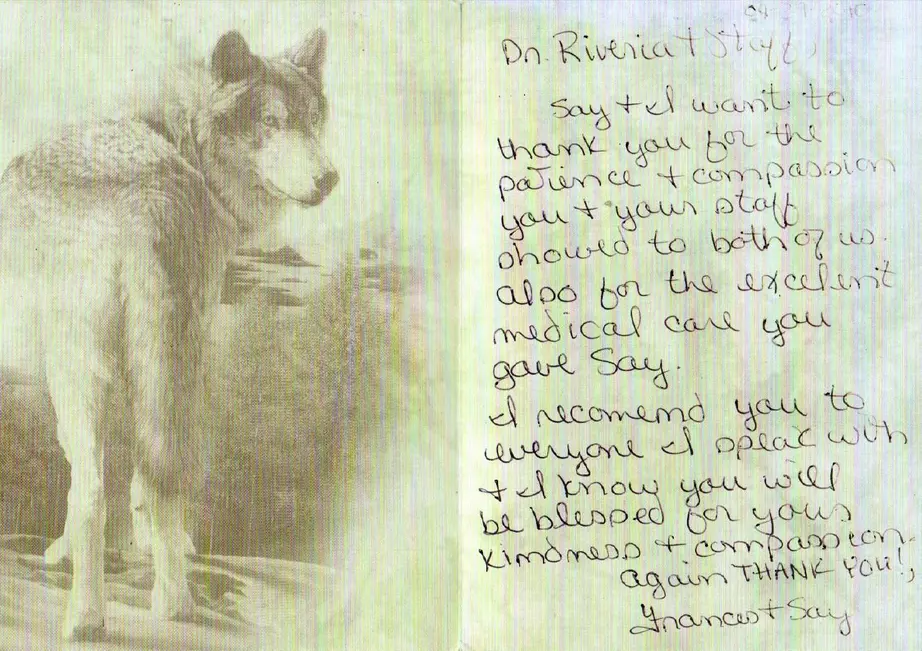 Dr. Riveria + Staff,
Say + I want to
thank you for the
patience + compassion
you + your staff
showed to both of us.
also for the excelent
medical care you
gave Say.
I recomend you to
everyone I speak with
+ I know you will
be blessed for your
kindness + compassion.
again THANK YOU!,
Frances + Say